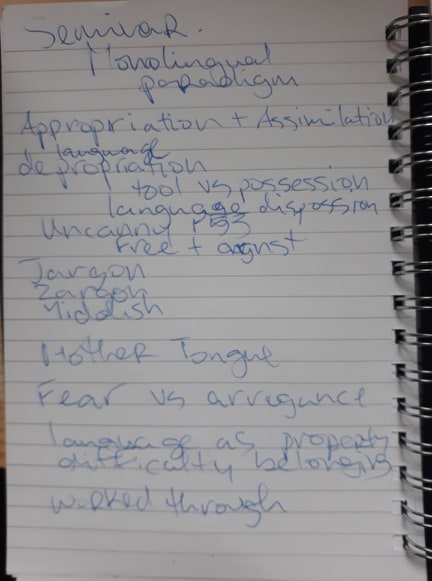 Seminar.
Monolingual
paradigm
Appropriation + Assimilation
language
depropriation
tool vs possession
language disposession
Uncanny P53
free + angst
Jargon
Zargon
Yiddish
Mother Tongue
Fear vs arrogance
language as property
difficulty belonging
worked through